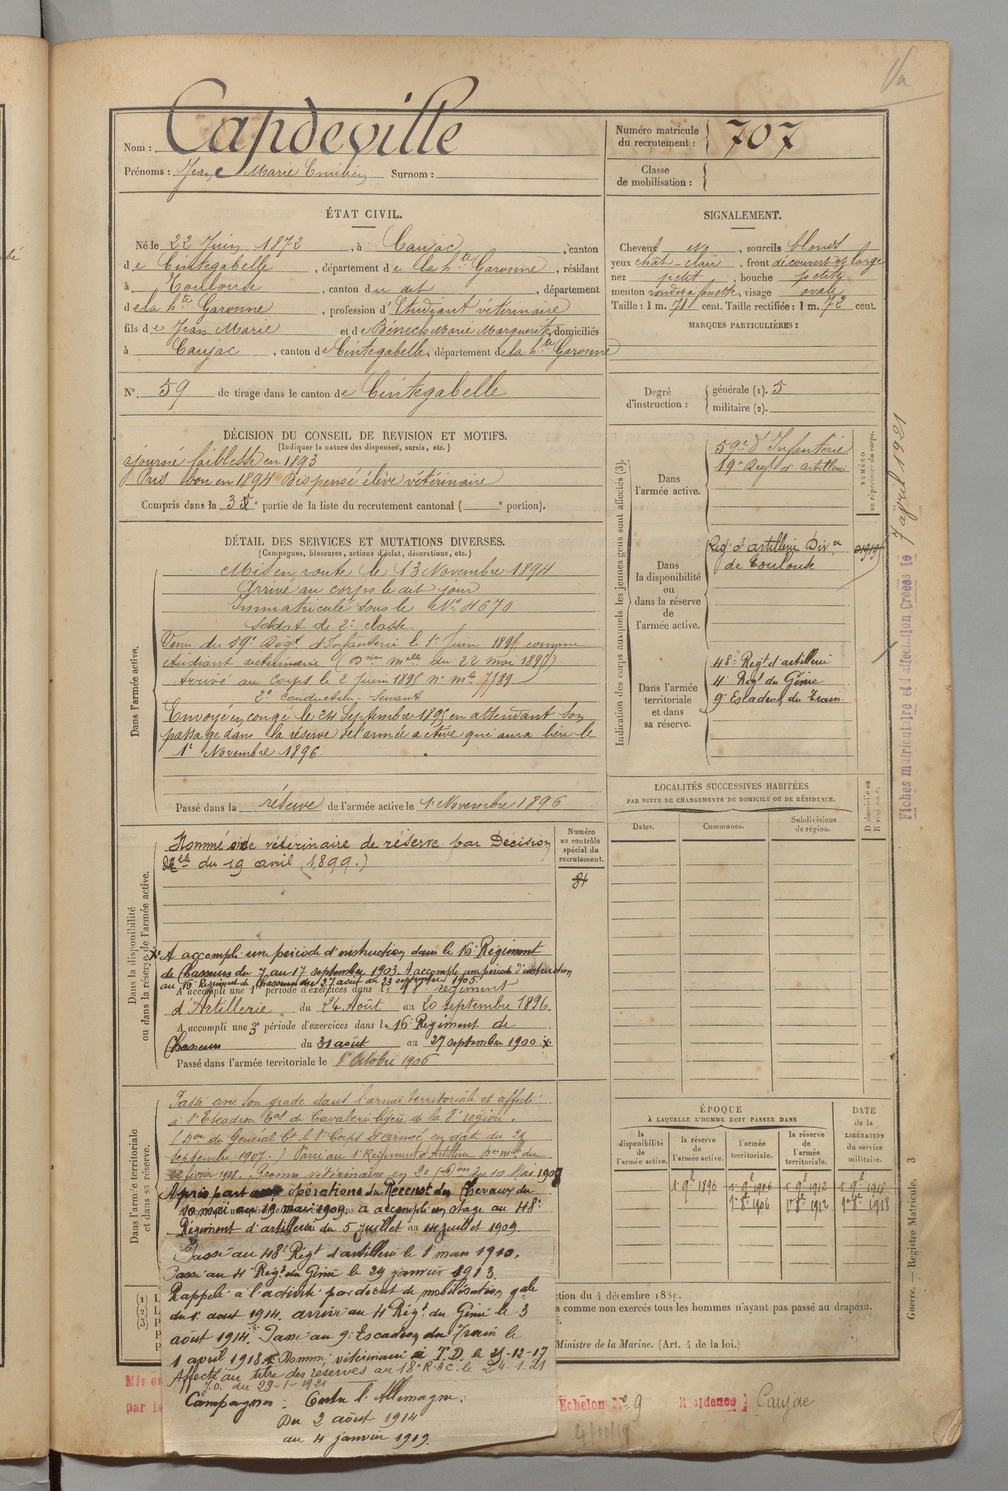 Nom : Capdeville
Prénoms : Jean Marie Emilien Surnom :
Numéro matricule du recrutement : 707
Classe de mobilisation :
ÉTAT CIVIL.
Né le 22 Juin 1872, à Caujac, canton
de Cintegabelle, département de la hte Garonne, résidant
à Toulouse, canton du dit, département
de la hte Garonne, profession d'Etudiant vétérinaire
fils de Jean Marie et de Bénech Marie Marguerite, domiciliés
à Caujac, canton de Cintegabelle, département de la hte Garonne
N° 59 de tirage dans le canton de Cintegabelle
SIGNALEMENT.
Cheveux et, sourcils blonds
yeux chât-clair, front découvert et large
nez petit, bouche petite
menton rond à fossette, visage ovale
Taille : 1 m. 71 cent. Taille rectifiée : 1 m. 72 cent.
MARQUES PARTICULIÈRES :
Degré d'instruction : générale (1). 5
militaire (2).
DÉCISION DU CONSEIL DE REVISION ET MOTIFS.
(Indiquer la nature des dispenses, sursis, etc.)
Ajourné faiblesse en 1893
Pris bon en 1894 Dispensé élève vétérinaire
Compris dans la 3e partie de la liste du recrutement cantonal ( e portion).
DÉTAIL DES SERVICES ET MUTATIONS DIVERSES.
(Campagnes, blessures, actions d'éclat, décorations, etc.)
Dans l'armée active.
Mis en route le 13 Novembre 1894
Arrivé au corps le dit jour
Immatriculé sous le N° 4670
Soldat de 2e classe
Venu du 59e Régt d'Infanterie le 1er Juin 1895 comme
étudiant vétérinaire (Don melle du 22 mai 1895)
Arrivé au Corps le 2 Juin 1895 n° mle 7789
2e conducteur-Servant
Envoyé en congé le 24 Septembre 1895 en attendant son
passage dans la réserve de l'armée active qui aura lieu le
1er Novembre 1896.
Passé dans la réserve de l'armée active le 1er Novembre 1896
Indication des corps auxquels les jeunes gens sont affectés (3).
NUMÉRO au répertoire du corps.
Dans l'armée active.
59e d'Infanterie
19e Regt d'artillerie
Dans la disponibilité ou dans la réserve de l'armée active.
Reg. d'artillerie Divre
de Toulouse
Dans l'armée territoriale et dans sa réserve.
48e Regt d'artillerie
4e Regt du Génie
9e Escadron du Train
Fiches matriculaire et d'affectation créées le 7 avril 1921
LOCALITÉS SUCCESSIVES HABITÉES
PAR SUITE DE CHANGEMENTS DE DOMICILE OU DE RÉSIDENCE.
Dates. Communes. Subdivisions de région. D domicile ou R résidence.
Dans la disponibilité ou dans la réserve de l'armée active.
Numéro au contrôle spécial du recrutement.
84
Nommé aide vétérinaire de réserve par Décision
du 19 avril 1899.)
x A accompli une période d'instruction dans le 16e Régiment
de Chasseurs du 7 au 17 septembre 1903. A accompli une période d'instruction
au 16e Régiment de Chasseurs du 27 août au 23 septembre 1905.
A accompli une 1e période d'exercices dans le 18e régiment
d'Artillerie du 24 Août au 20 septembre 1896.
A accompli une 3e période d'exercices dans le 16e Régiment de
Chasseurs du 31 août au 27 septembre 1900. x
Passé dans l'armée territoriale le 1er Octobre 1906
Dans l'armée territoriale et dans sa réserve.
Passé avec son grade dans l'armée territoriale et affecté
à l'Escadron Tal de Cavalerie légère de la 8e région.
Septembre 1907.)
février 1908. Promu vétérinaire en 2e par du 10 Mai 1909
A pris part aux opérations du Recenst des Chevaux du
10 mai au 19 mai 1909. a accompli un stage au 48e
Régiment d'artillerie du 5 juillet au 14 juillet 1909.
Passé au 48e Régt d'artillerie le 1er mars 1910.
Passé au 4e Régt du Génie le 29 janvier 1913
Rappelé à l'activité par décret de mobilisation gale
du 1er août 1914. arrivé au 4 Régt du Génie le 3
août 1914. Passé au 9e Escadron du Train le
1 avril 1918. Nommé vétérinaire à T.D. le 25-12-17
Affecté au titre des réserves au 18e R.A.C. le 24.1.21
J.O. du 29-1-1921
Campagnes : Contre l'Allemagne :
Du 2 août 1914
au 4 janvier 1919.
ÉPOQUE
À LAQUELLE L'HOMME DOIT PASSER DANS
DATE de la LIBÉRATION du service militaire.
la disponibilité de l'armée active. la réserve de l'armée active. l'armée territoriale. la réserve de l'armée territoriale.
1 9bre 1896 1 9bre 1906 1 9bre 1912 1 9bre 1918
1er 8bre 1906 1er 8bre 1912 1er 8bre 1918
ction du 4 décembre 1889.
a comme non exercés tous les hommes n'ayant pas passé au drapeau.
Ministre de la Marine. (Art. 4 de la loi.)
Guerre. — Registre Matricule. 3
Mis en
par le
Echelon No 9 Résidence Caujac
4/11/19